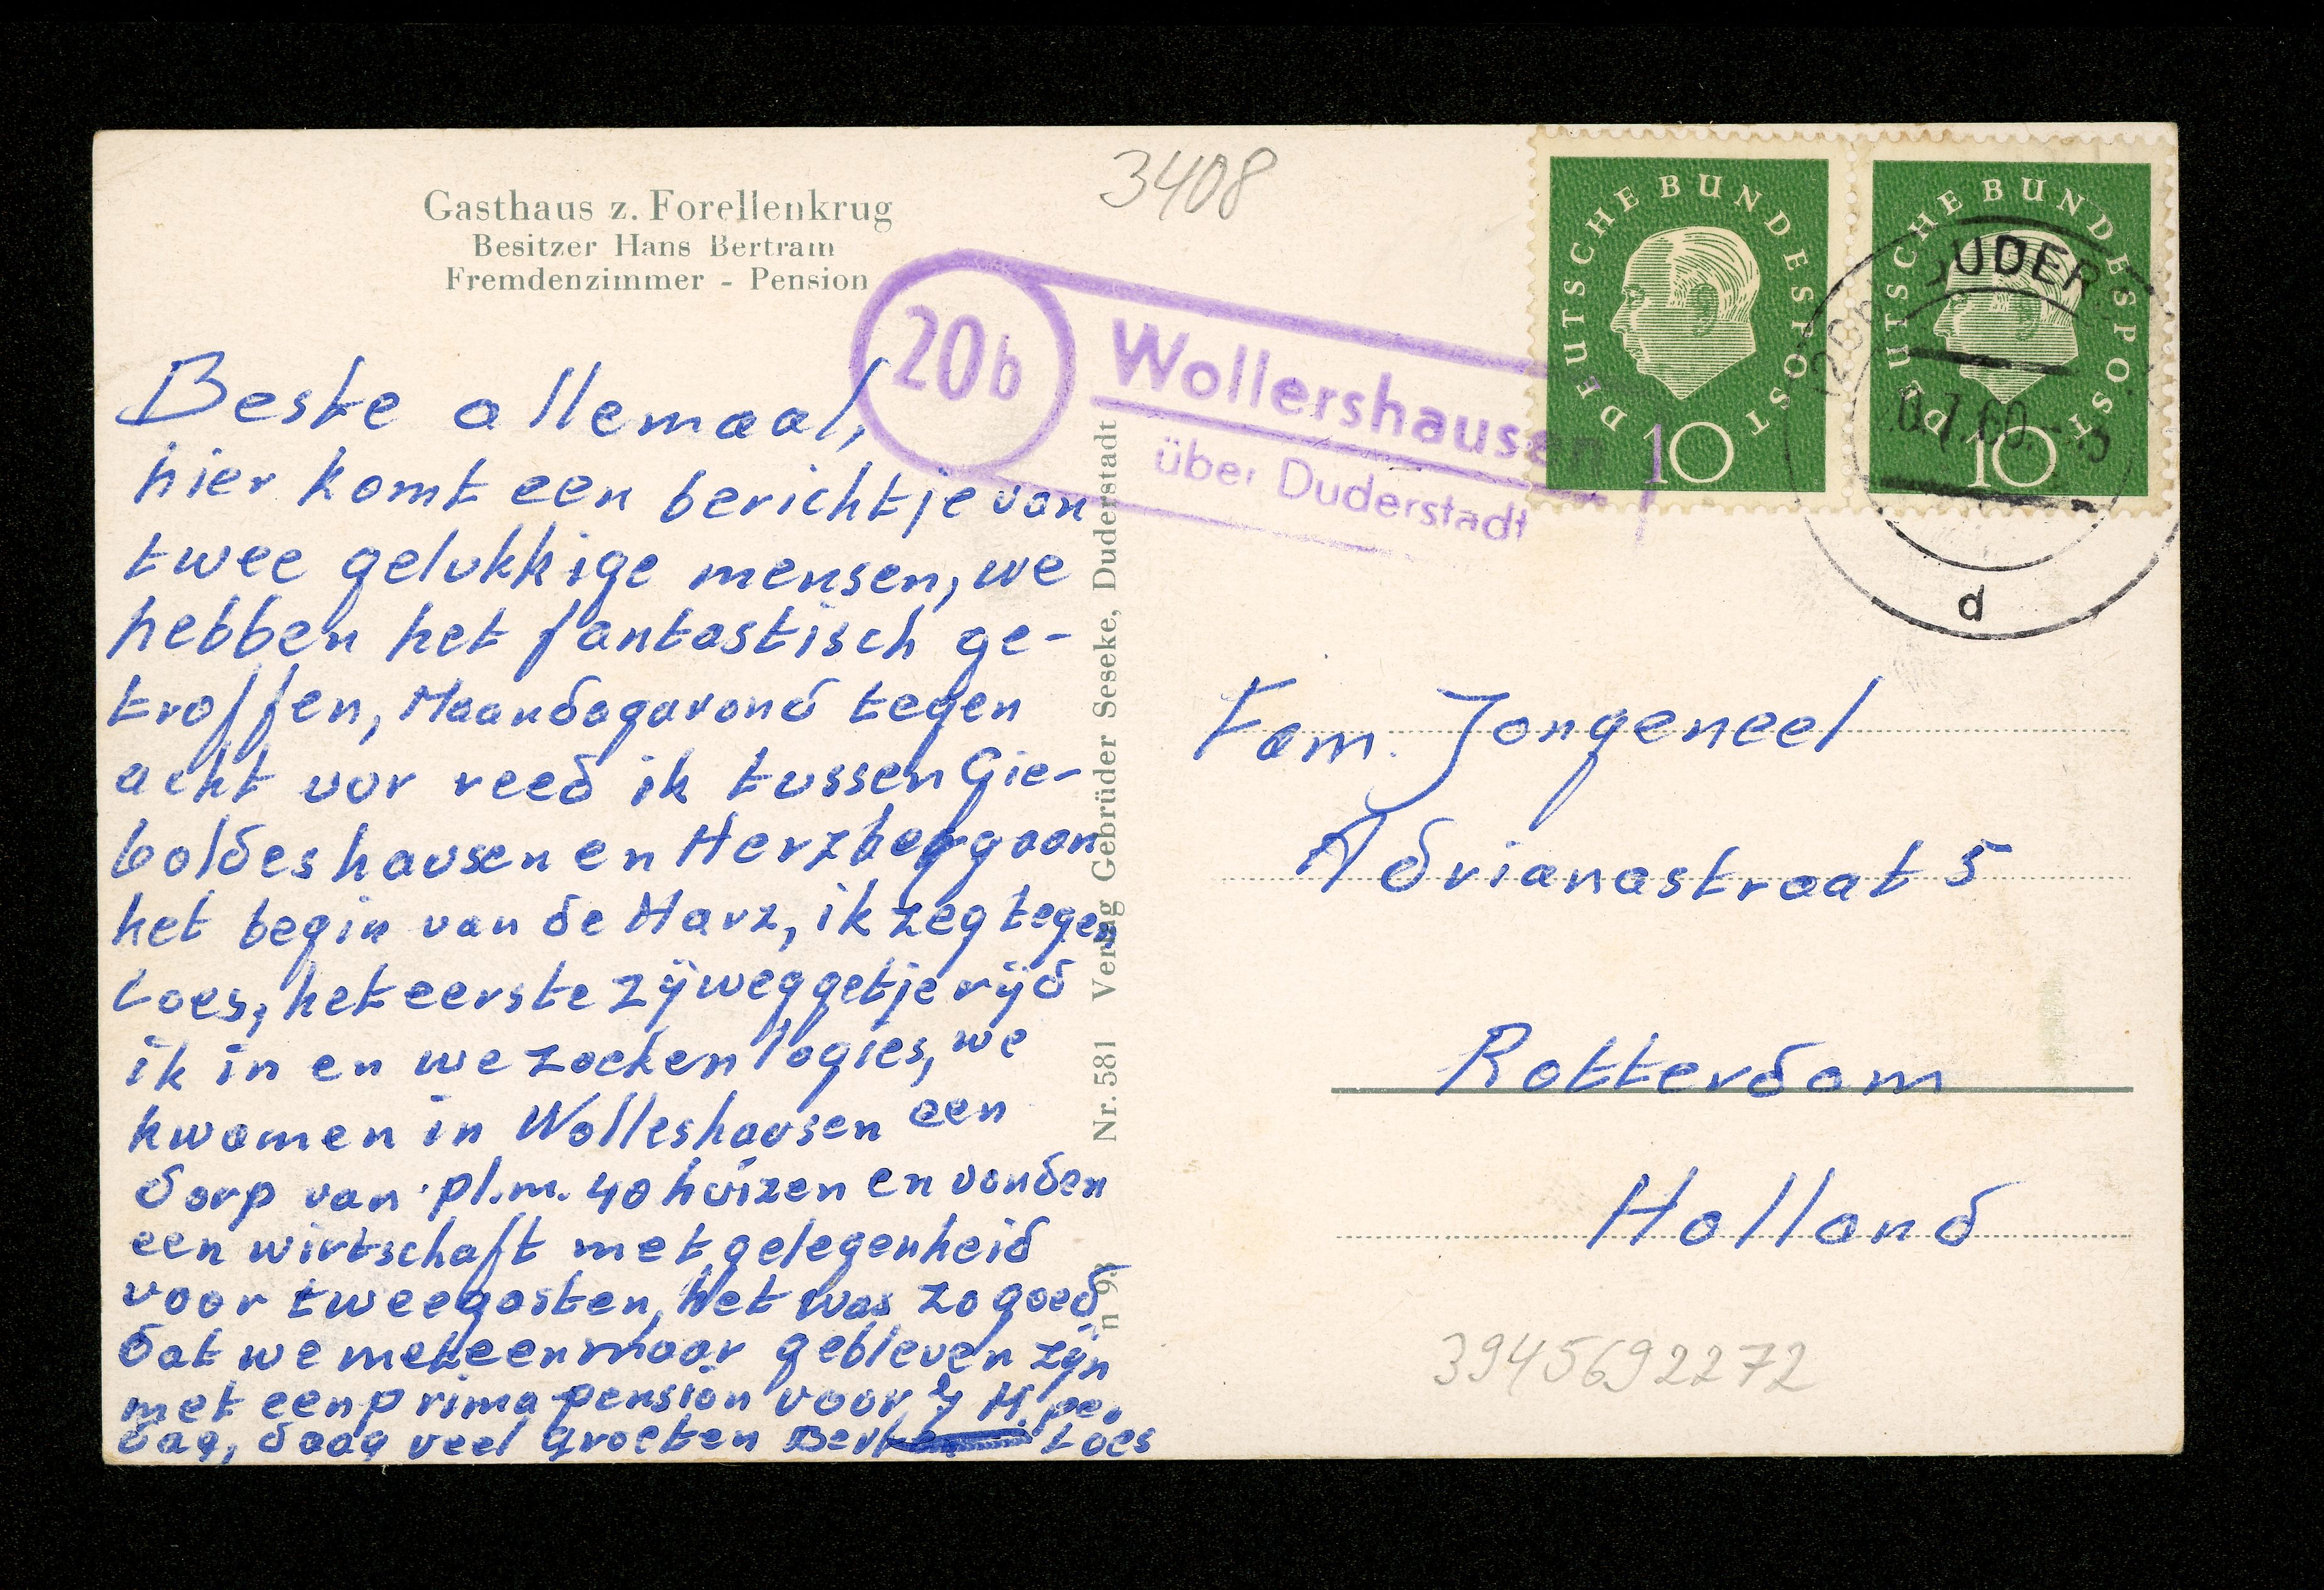 Gasthaus z. Forellenkrug
Besitzer Hans Bertram
Fremdenzimmer - Pension
3408
20b
Wollershausen
über Duderstadt
DEUTSCHE BUNDESPOST
10
DEUTSCHE BUNDESPOST
10
DUDER
7.60
d
Beste allemaal,
hier komt een berichtje van
twee gelukkige mensen, we
hebben het fantastisch ge-
troffen, Maandagavond tegen
acht uur reed ik tussen Gie-
boldeshausen en Herzberg aan
het begin van de Harz, ik zeg tegen
Loes, het eerste zijweggetje rijd
ik in en we zoeken logies, we
kwamen in Wolleshausen een
dorp van pl.m. 40 huizen en vonden
een wirtschaft met gelegenheid
voor twee gasten, het was zo goed
dat we meteen maar gebleven zijn
met een prima pension voor M. per
dag, daag veel groeten Bert Loes
Nr. 581 Verlag Gebrüder Seseke, Duderstadt
n 93
Fam. Jongeneel
Adrianastraat 5
Rotterdam
Holland
3945692272